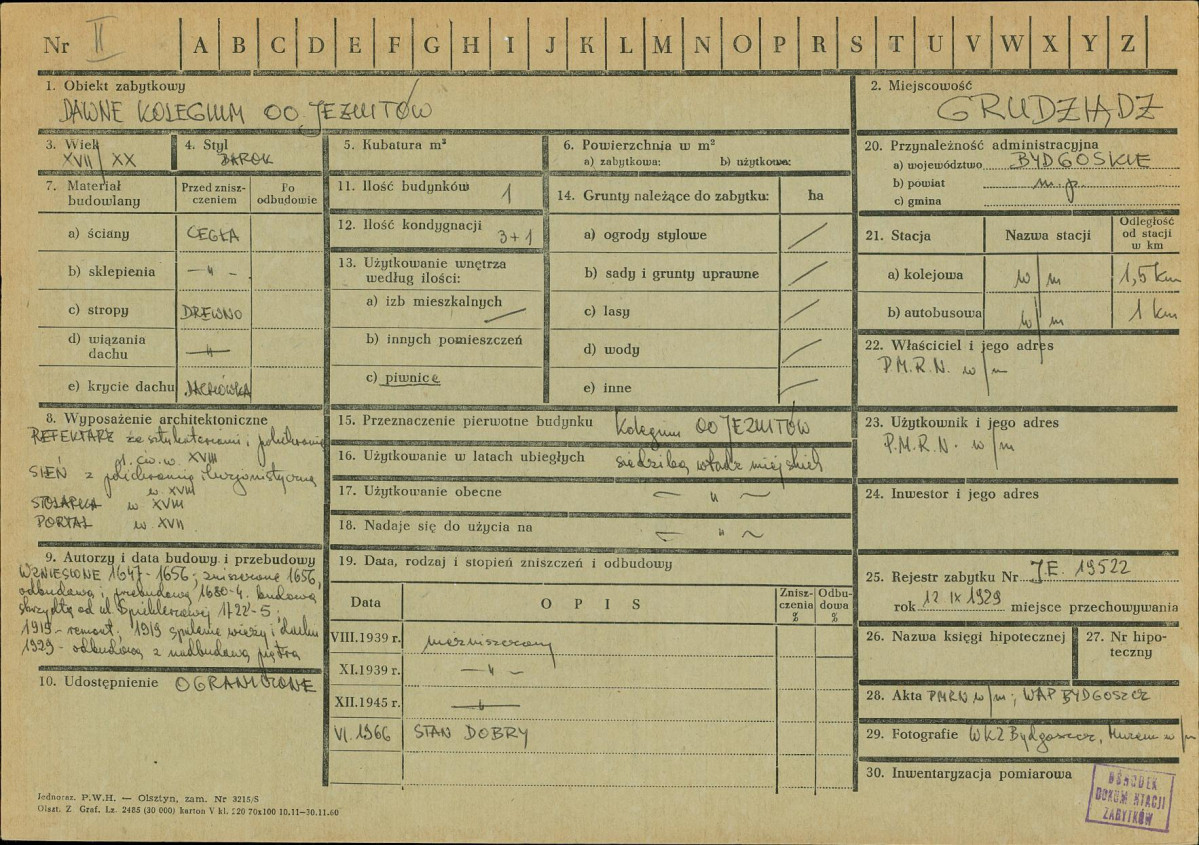 Nr II A B C D E F G H I J K L M N O P R S T U V W X Y Z
1. Obiekt zabytkowy
DAWNE KOLEGIUM OO JEZUITÓW
2. Miejscowość
GRUDZIĄDZ
3. Wiek
XVII / XX
4. Styl
BAROK
5. Kubatura m³
6. Powierzchnia w m²
a) zabytkowa: b) użytkowa:
20. Przynależność administracyjna
a) województwo BYDGOSKIE
b) powiat m.p.
c) gmina
7. Materiał budowlany
Przed zniszczeniem
Po odbudowie
a) ściany CEGŁA
b) sklepienia — " —
c) stropy DREWNO
d) wiązania dachu — " —
e) krycie dachu DACHÓWKA
11. Ilość budynków 1
12. Ilość kondygnacji 3+1
13. Użytkowanie wnętrza według ilości:
a) izb mieszkalnych /
b) innych pomieszczeń
c) piwnice
14. Grunty należące do zabytku: ha
a) ogrody stylowe /
b) sady i grunty uprawne /
c) lasy /
d) wody /
e) inne /
21. Stacja Nazwa stacji Odległość od stacji w km
a) kolejowa w/m 1,5 km
b) autobusowa w/m 1 km
22. Właściciel i jego adres
P.M.R.N. w/m
8. Wyposażenie architektoniczne
REFEKTARZ ze sztukateriami, polichromią
XVIII
SIEŃ z polichromią iluzjonistyczną
w. XVIII
STOLARKA w XVIII
PORTAL w. XVII
15. Przeznaczenie pierwotne budynku Kolegium OO JEZUITÓW
16. Użytkowanie w latach ubiegłych siedziba władz miejskich
17. Użytkowanie obecne — " —
18. Nadaje się do użycia na — " —
23. Użytkownik i jego adres
P.M.R.N. w/m
24. Inwestor i jego adres
9. Autorzy i data budowy i przebudowy
WZNIESIONE 1647-1656; zniszczone 1656,
odbudowa i przebudowa 1680-4. budowa
skrzydła od ul. Spichlerzowej 1722-5;
1915- remont; 1919 spalenie wieży i dachu
1929- odbudowa z nadbudową piętra
10. Udostępnienie OGRANICZONE
19. Data, rodzaj i stopień zniszczeń i odbudowy
Data OPIS Zniszczenia % Odbudowa %
VIII.1939 r. niezniszczony
XI.1939 r. — " —
XII.1945 r. — " —
VI.1966 STAN DOBRY
25. Rejestr zabytku Nr J.E. 19522
rok 12 IX 1929 miejsce przechowywania
26. Nazwa księgi hipotecznej
27. Nr hipoteczny
28. Akta PMRN w/m; WAP BYDGOSZCZ
29. Fotografie WKZ Bydgoszcz, Muzeum w/m
30. Inwentaryzacja pomiarowa
OŚRODEK
DOKUMENTACJI
ZABYTKÓW
Jednoraz. P.W.H. — Olsztyn, zam. Nr 3215/S
Olszt. Z Graf. Lz. 2485 (30 000) karton V kl. 220 70x100 10.11—30.11.60